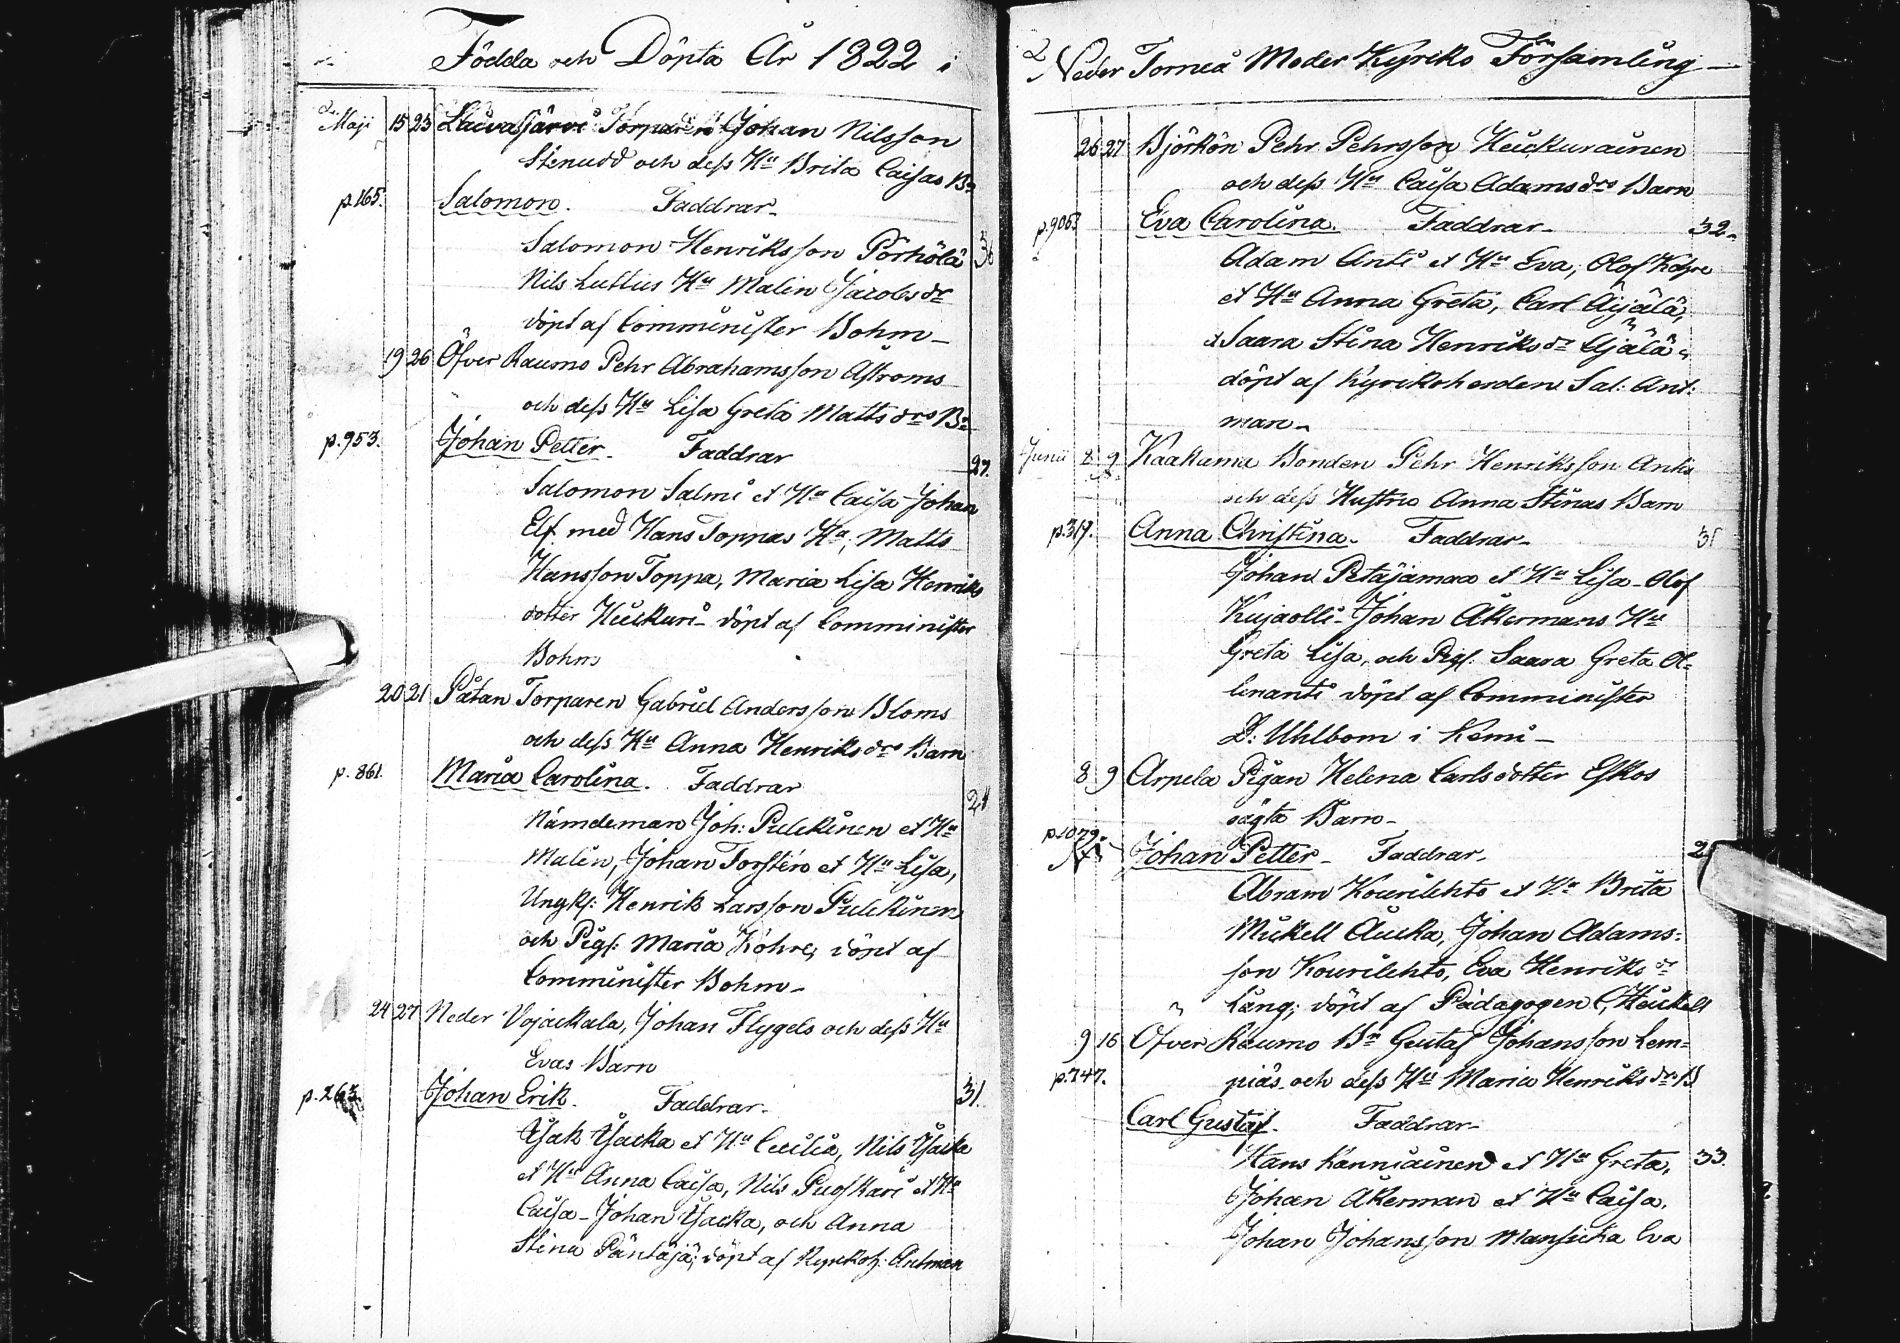 Födda och Döpta År 1822 i
Maji 15 23 Laivajärvi Torparen Johan Nilsson
Stenudd och dess Hu Brita Caisas Bn
p.165. Salomon. Faddrar
Salomon Henriksson Pörhölä 36
Nils Luttus Hu Malin Jacobs dr
döpt af Comminister Bohm
19 26 Öfver Raumo Pehr Abrahamsson Aströms
och dess Hu Lisa Greta Matts drs Bn
p.953. Johan Petter. Faddrar 27.
Salomon Salmi et Hu Caisa Johan
Elf med Hans Toppas Hu, Matts
Hansson Toppa, Maria Lisa Henriks
dotter Huckuri döpt af Comminister
Bohm
20 21 Påtan Torparen Gabriel Andersson Bloms
och dess Hu Anna Henriks drs Barn
p. 861. Maria Carolina. Faddrar 21
Nämdeman Joh: Pulckinen et Hu
Malin, Johan Torstén et Hu Lisa,
Ungk: Henrik Larsson Pulckinen
och Pig: Maria Köhre, döpt af
Comminister Bohm
24 27 Neder Vojackala, Johan Flygels och dess Hu
Evas Barn
p.263 Johan Erik. Faddrar 31.
Isak Yacka et Hu Cecilia, Nils Yacka
et Hu Anna Caisa, Nils Puoskari et Hu
Caisa Johan Yacka, och Anna
Stina Päntäjä; döpt af Kyrkoh: Antman
2 Neder Torneå Moder Kyriko Församling
26 27 Björkön Pehr Pehrsson Heickurainen
och dess Hu Caisa Adams drs Barn
p.906. Eva Carolina. Faddrar 32.
Adam Anti et Hu Eva, Olof Köhre
et Hu Anna Greta, Carl Äijälä,
Saara Stina Henriks dr Äijälä
döpt af Kyrikoherden Sal: Ant:
man
Junii 8 9 Kaakama Bonden Pehr Henriksson Antis
och dess Hustro Anna Stinas Barn
p.317. Anna Christina. Faddrar 31
Johan Petäjämaa et Hu Lisa Olof
Kujaolli Johan Åkermans Hu
Greta Lisa, och Pigf: Saara Greta Ol-
linanti döpt af Comminister
D: Uhlbom i Kemi
8 9 Arpela Pigan Helena Carlsdotter Eskos
oägta Barn
p.1079. Johan Petter Faddrar
Abram Kourilehto et Hu Brita
Mickell Aucka, Johan Adams:
son Kourilehto, Eva Henriks dr
Lång; döpt af Pädagogen C, Heickell
9 16 Öfver Raumo Bn Gustaf Johansson Lem=
p.747. piäs och dess Hu Maria Henriks drs B
Carl Gustaf. Faddrar
Hans Känniäinen et Hu Greta, 33.
Johan Åkerman et Hu Caisa.
Johan Johansson Mansicka Eva